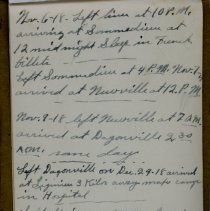 Nov. 6-18- Left line at 10 P.M.
arriving at Sommedieu at
12 midnight Sleep in French
Billets
Left Sommedieu at 4 P.M. Nov. 7
arrived at Neuville at 12 P.M.
Nov. 9-18- left Neuville at 7 A.M.
arrived at Dagonville at 2:30
same day
Left Dagonville on Dec. 29-18 arrived
at 3 Kilo away
in Hospital